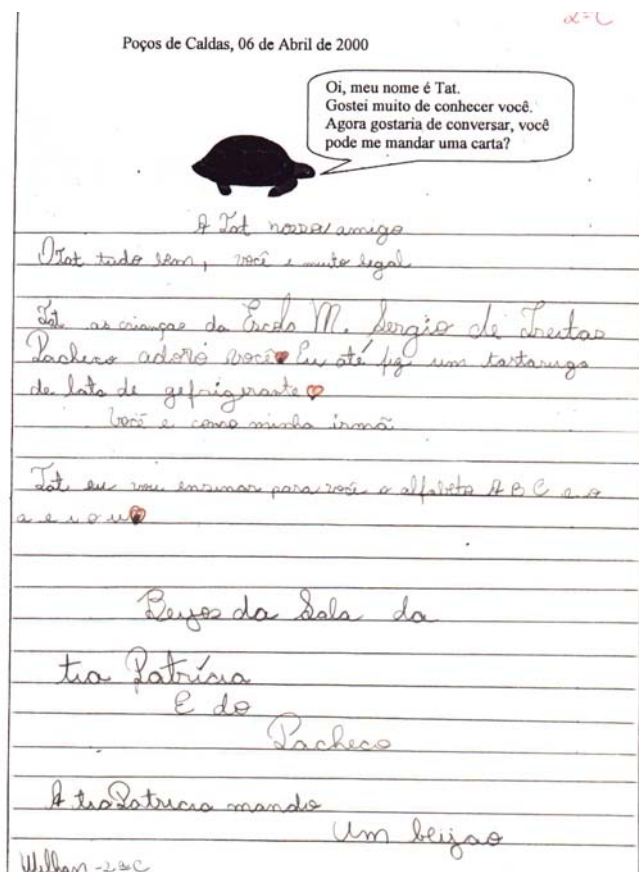 2ªC
Poços de Caldas, 06 de Abril de 2000
Oi, meu nome é Tat.
Gostei muito de conhecer você.
Agora gostaria de conversar, você
pode me mandar uma carta?
A Tat nossa amiga
O Tat tudo bem, você e muto legal
Tat as crianças da Escola M. Sergio de Freitas
Pacheco adoro você Eu até fiz um tartaruga
de lata de gefrigerante
você e como minha irmã.
Tat eu vou ensinar para você o alfabeto A B C e o
a e i o u
Beijos da Sala da
tia Patrícia
E do
Pacheco
A tia Patricia mando
um beijao
Willian - 2ªC